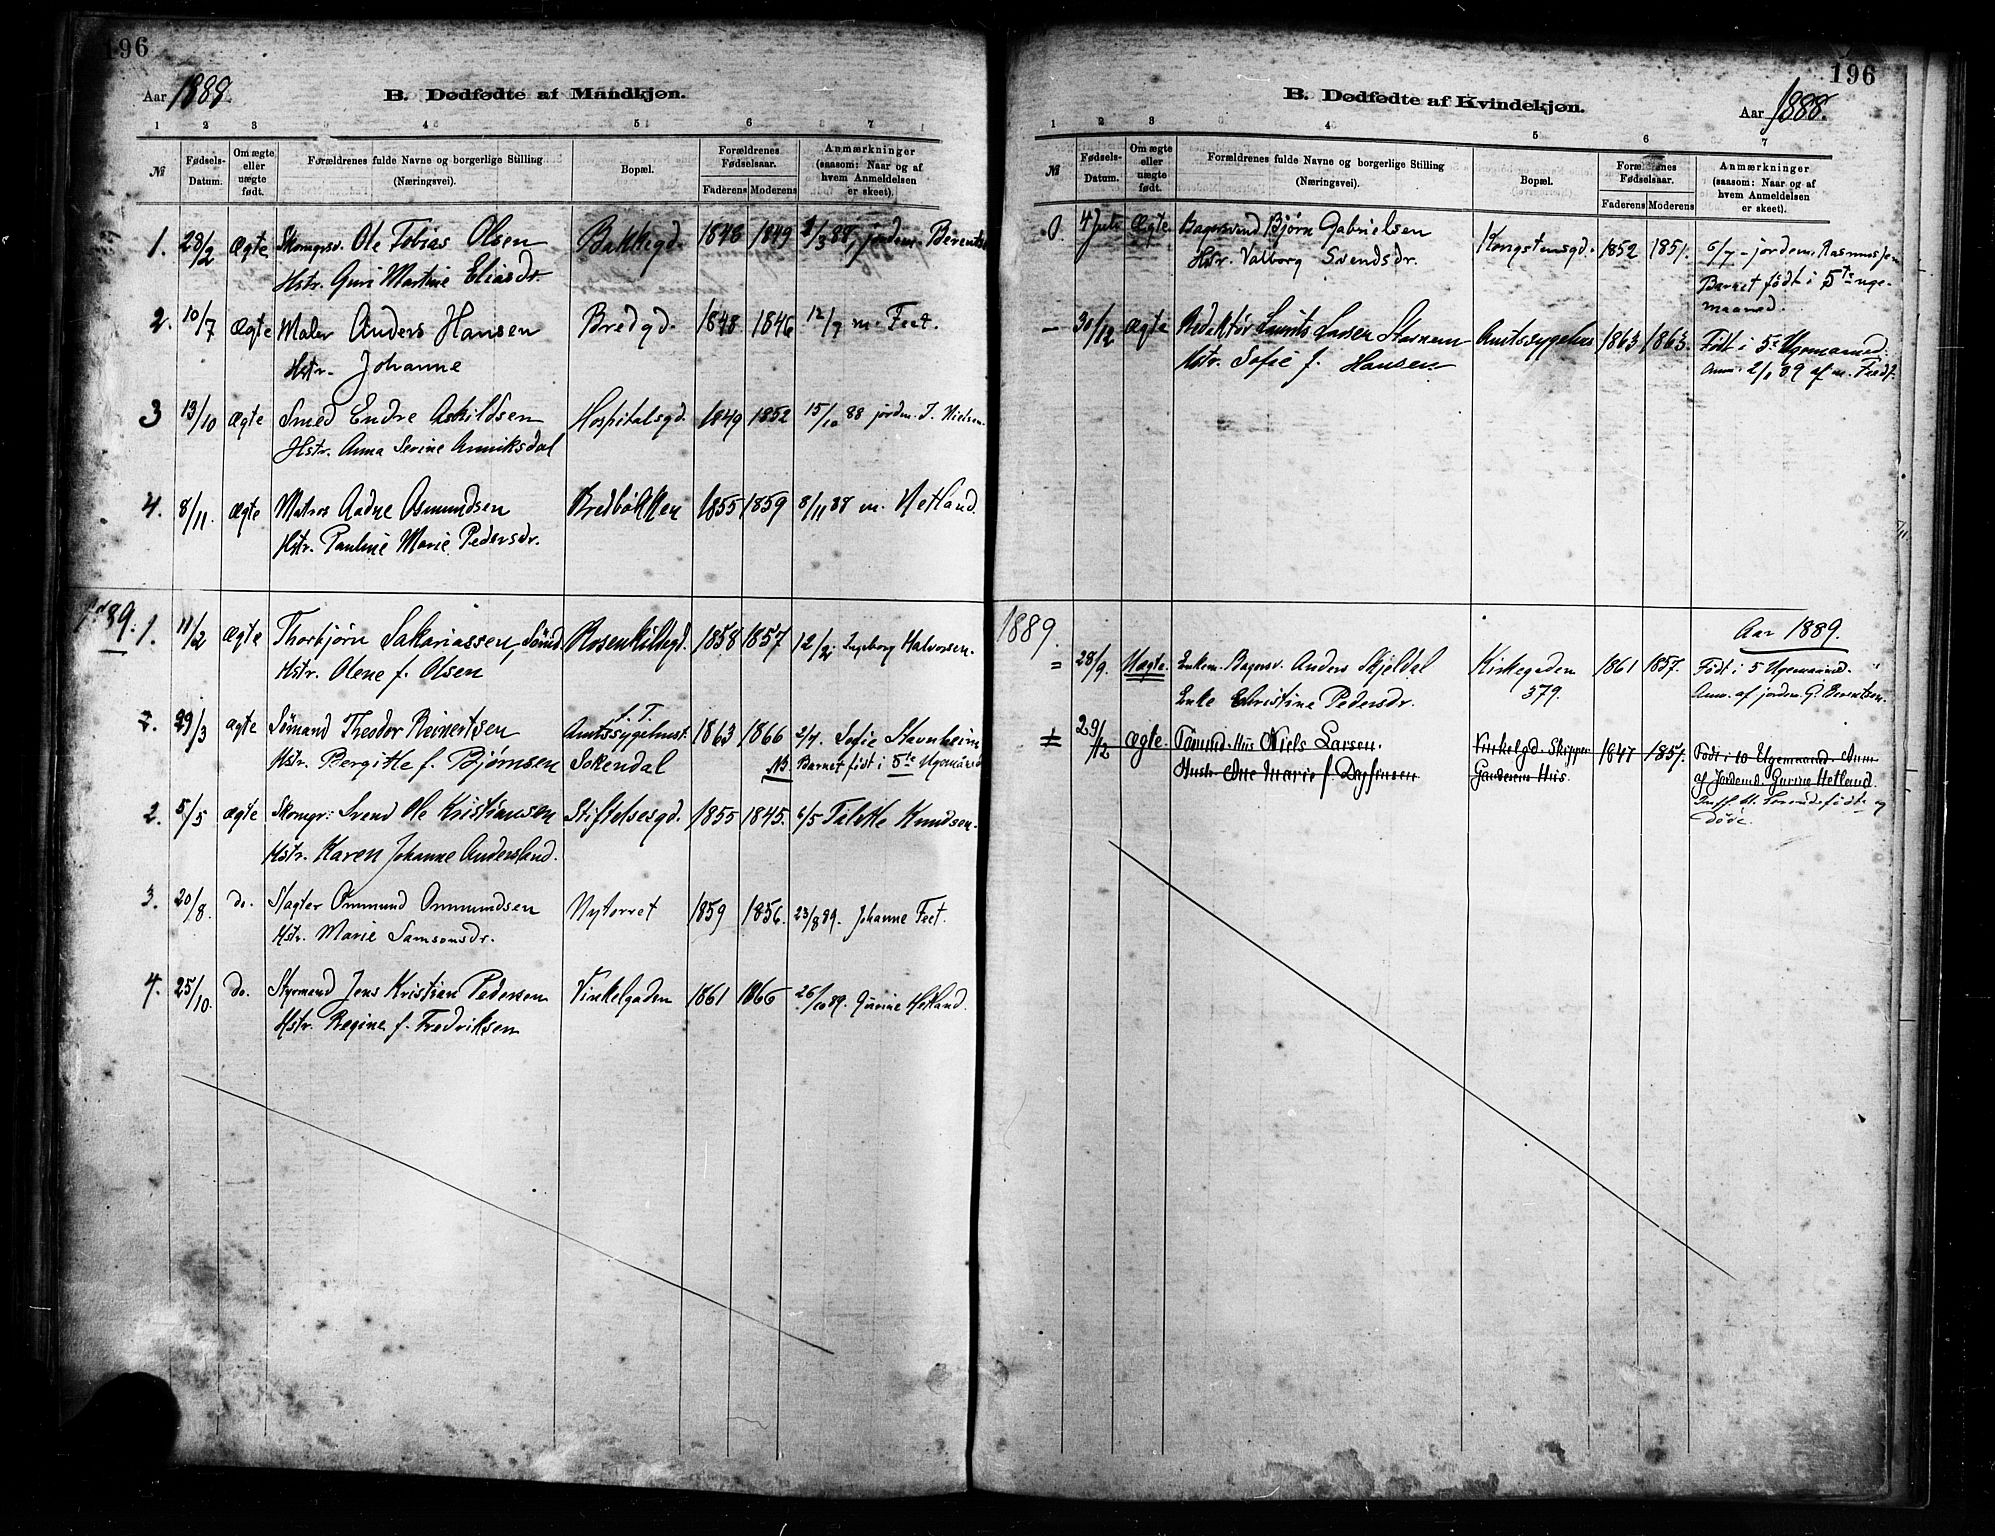 196
Aar 1888.
B. Dødfødte af Mandkjøn.
1 2 3 4 5 6 7
№
Fødsels-Datum.
Om ægte eller uægte født.
Forældrenes fulde Navne og borgerlige Stilling
(Næringsvei).
Bopæl.
Forældrenes Fødselsaar.
Faderens Moderens
Anmærkninger
(saasom: Naar og af
hvem Anmeldelsen
er skeet).
1. 28/2 Ægte Skomgrsv. Ole Tobias Olsen Bakkegd. 1848 1849 /3 88, jordm. Berents
Hstr. Guri Martine Eliasdr.
2. 10/7 Ægte Maler Anders Hansen Bredgd. 1848 1846 12/7 m. Feet.
Hstr. Johanne
3 13/10 Ægte Smed Endre Askildsen Hospitalsgd. 1849 1852 15/10 88 jordm. J. Nielsen.
Hstr. Anna Serine Anniksdal
4. 8/11. Ægte Matros Aadne Asmundsen Bredbakken 1855 1859 8/11 88 m. Hetland.
Hstr. Pauline Marie Pedersdr.
89. 1. 11/2 Ægte Thorbjørn Sakariassen, Sömd. Rosenkildegd. 1858 1857 12/2. Ingeborg Halvorsen.
Hstr. Olene f. Olsen
2. 29/3 ægte Sömand Theodor Reinertsen Amtssygehuset s. T. 1863 1866 2/4. Sofie Stavnheim
Hstr. Bergitte f. Bjørnsen Sokendal NB. Barnet født i 5te Ugemaaned
2. 5/5 ægte Skomgr. Svend Ole Kristiansen Stiftelsesgd. 1855 1845. 6/5 Talette Knudsen.
Hstr. Karen Johanne Andersland.
3. 20/8. do. Slagter Ommund Ommundsen Nytorvet 1859 1856. 23/8 89. Johanne Feet.
Hstr. Marie Samsonsdr.
4. 25/10. do. Styrmand Jens Kristian Pedersen Vinkelgaden 1861 1866 26/10 89. Gurine Hetland.
Hstr. Regine f. Fredriksen
196
B. Dødfødte af Kvindekjøn.
Aar 1888.
1 2 3 4 5 6 7
№
Fødsels-Datum.
Om ægte eller uægte født.
Forældrenes fulde Navne og borgerlige Stilling
(Næringsvei).
Bopæl.
Forældrenes Fødselsaar.
Faderens Moderens
Anmærkninger
(saasom: Naar og af
hvem Anmeldelsen
er skeet).
0. 4 Juli Ægte Bagersvend Bjørn Gabrielsen Kongstensgd. 1852 1851. 6/7 - jordem. Rasmussen
Hstr. Valborg Svendsdr. Barnet født i 5te uge-
maaned.
- 30/12 Ægte Redaktör Laurits Larsen Amtssygehus 1863 1863. Født i 5te Ugemaaned.
Hstr. Sofie f. Hansen Anm. 2/1 89 af m. Feet.
1889. Aar 1889.
= 28/9. Uægte. Enkem. Bagersv. Anders Skjoldal Kirkegaden 1861 1857. Født i 5 Ugemaaned.
Enke Christine Pedersdr. 379. Anm. af jordm. G. Berentsen.
29/12 ægte. Niels Larsen. Vinkelgd. Skipper 1847 1857. Født i 10 Ugemaaned. Anm
Hustr. Ane Marie f. Hus. af Jordemd. Gurine Hetland.